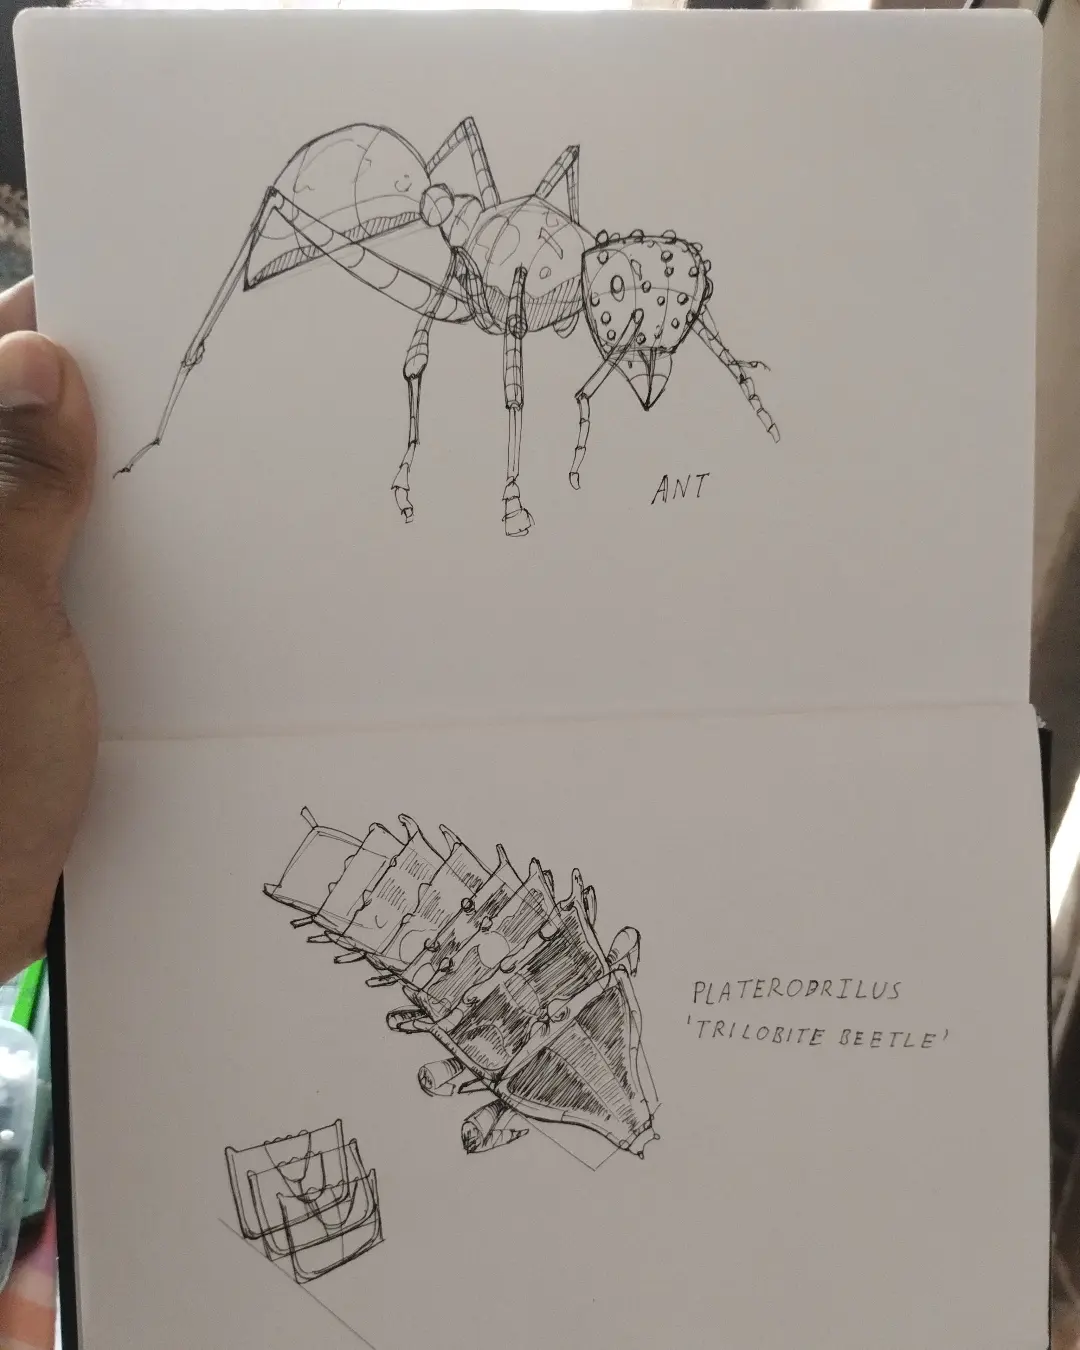 ANT
PLATERODRILUS
'TRILOBITE BEETLE'